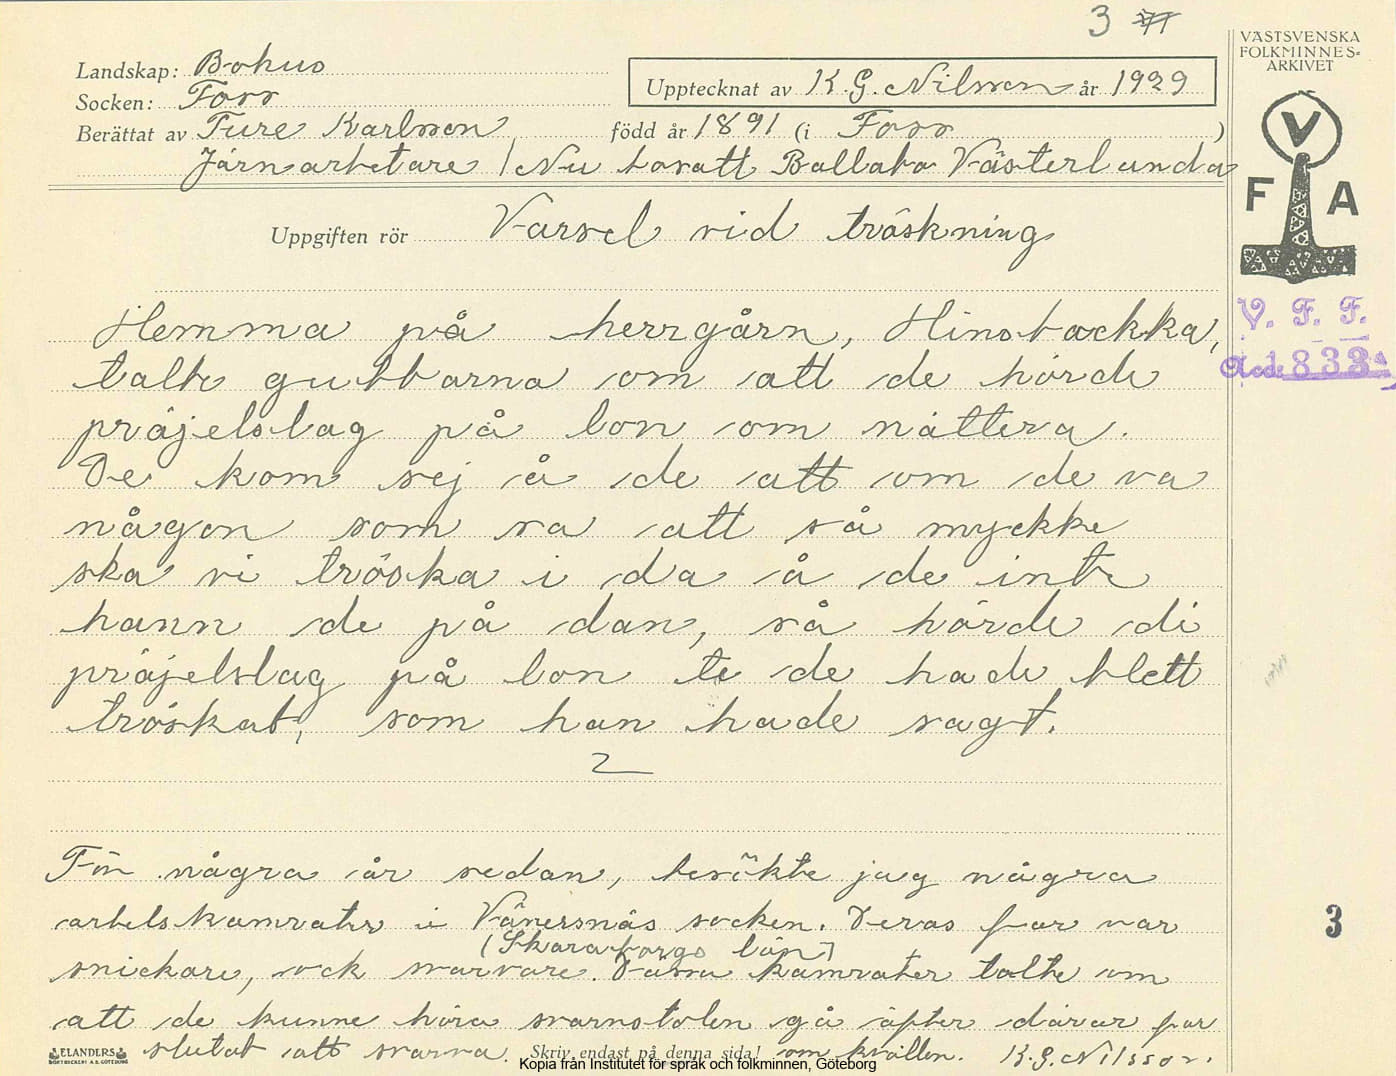 3
VÄSTSVENSKA
FOLKMINNES-
ARKIVET
Landskap: Bohus
Socken: Forss
Upptecknat av K. G. Nilsson år 1929
Berättat av Ture Karlsson född år 1891 (i Forss)
Järnarbetare / Nu bosatt Ballabo Västerlunda
V
F A
Uppgiften rör Varsel vid tröskning
V. F. F.
Acc. 833
Hemma på herrgårn, Hinsbackka,
talte gubbarna om att de hörde
präjelslag på lon om nättera.
De kom sej å de att om de va
någon som sa att så myckke
ska vi tröska i da å de inte
hann de på dan, så hörde di
präjelslag på lon te de hade blett
tröskat, som han hade sagt.
För några år sedan, besökte jag några
arbetskamrater i Vänersnäs socken. Deras far var
(Skaraborgs län)
snickare, ock svarvare. Dässa kamrater talte om
att de kunne höra svarvstolen gå äfter däras far
slutat att svarva. om kvällen. K. G. Nilsson.
Skriv endast på denna sida!
ELANDERS
BOKTRYCKERI A.B. GÖTEBORG
3
Kopia från Institutet för språk och folkminnen, Göteborg